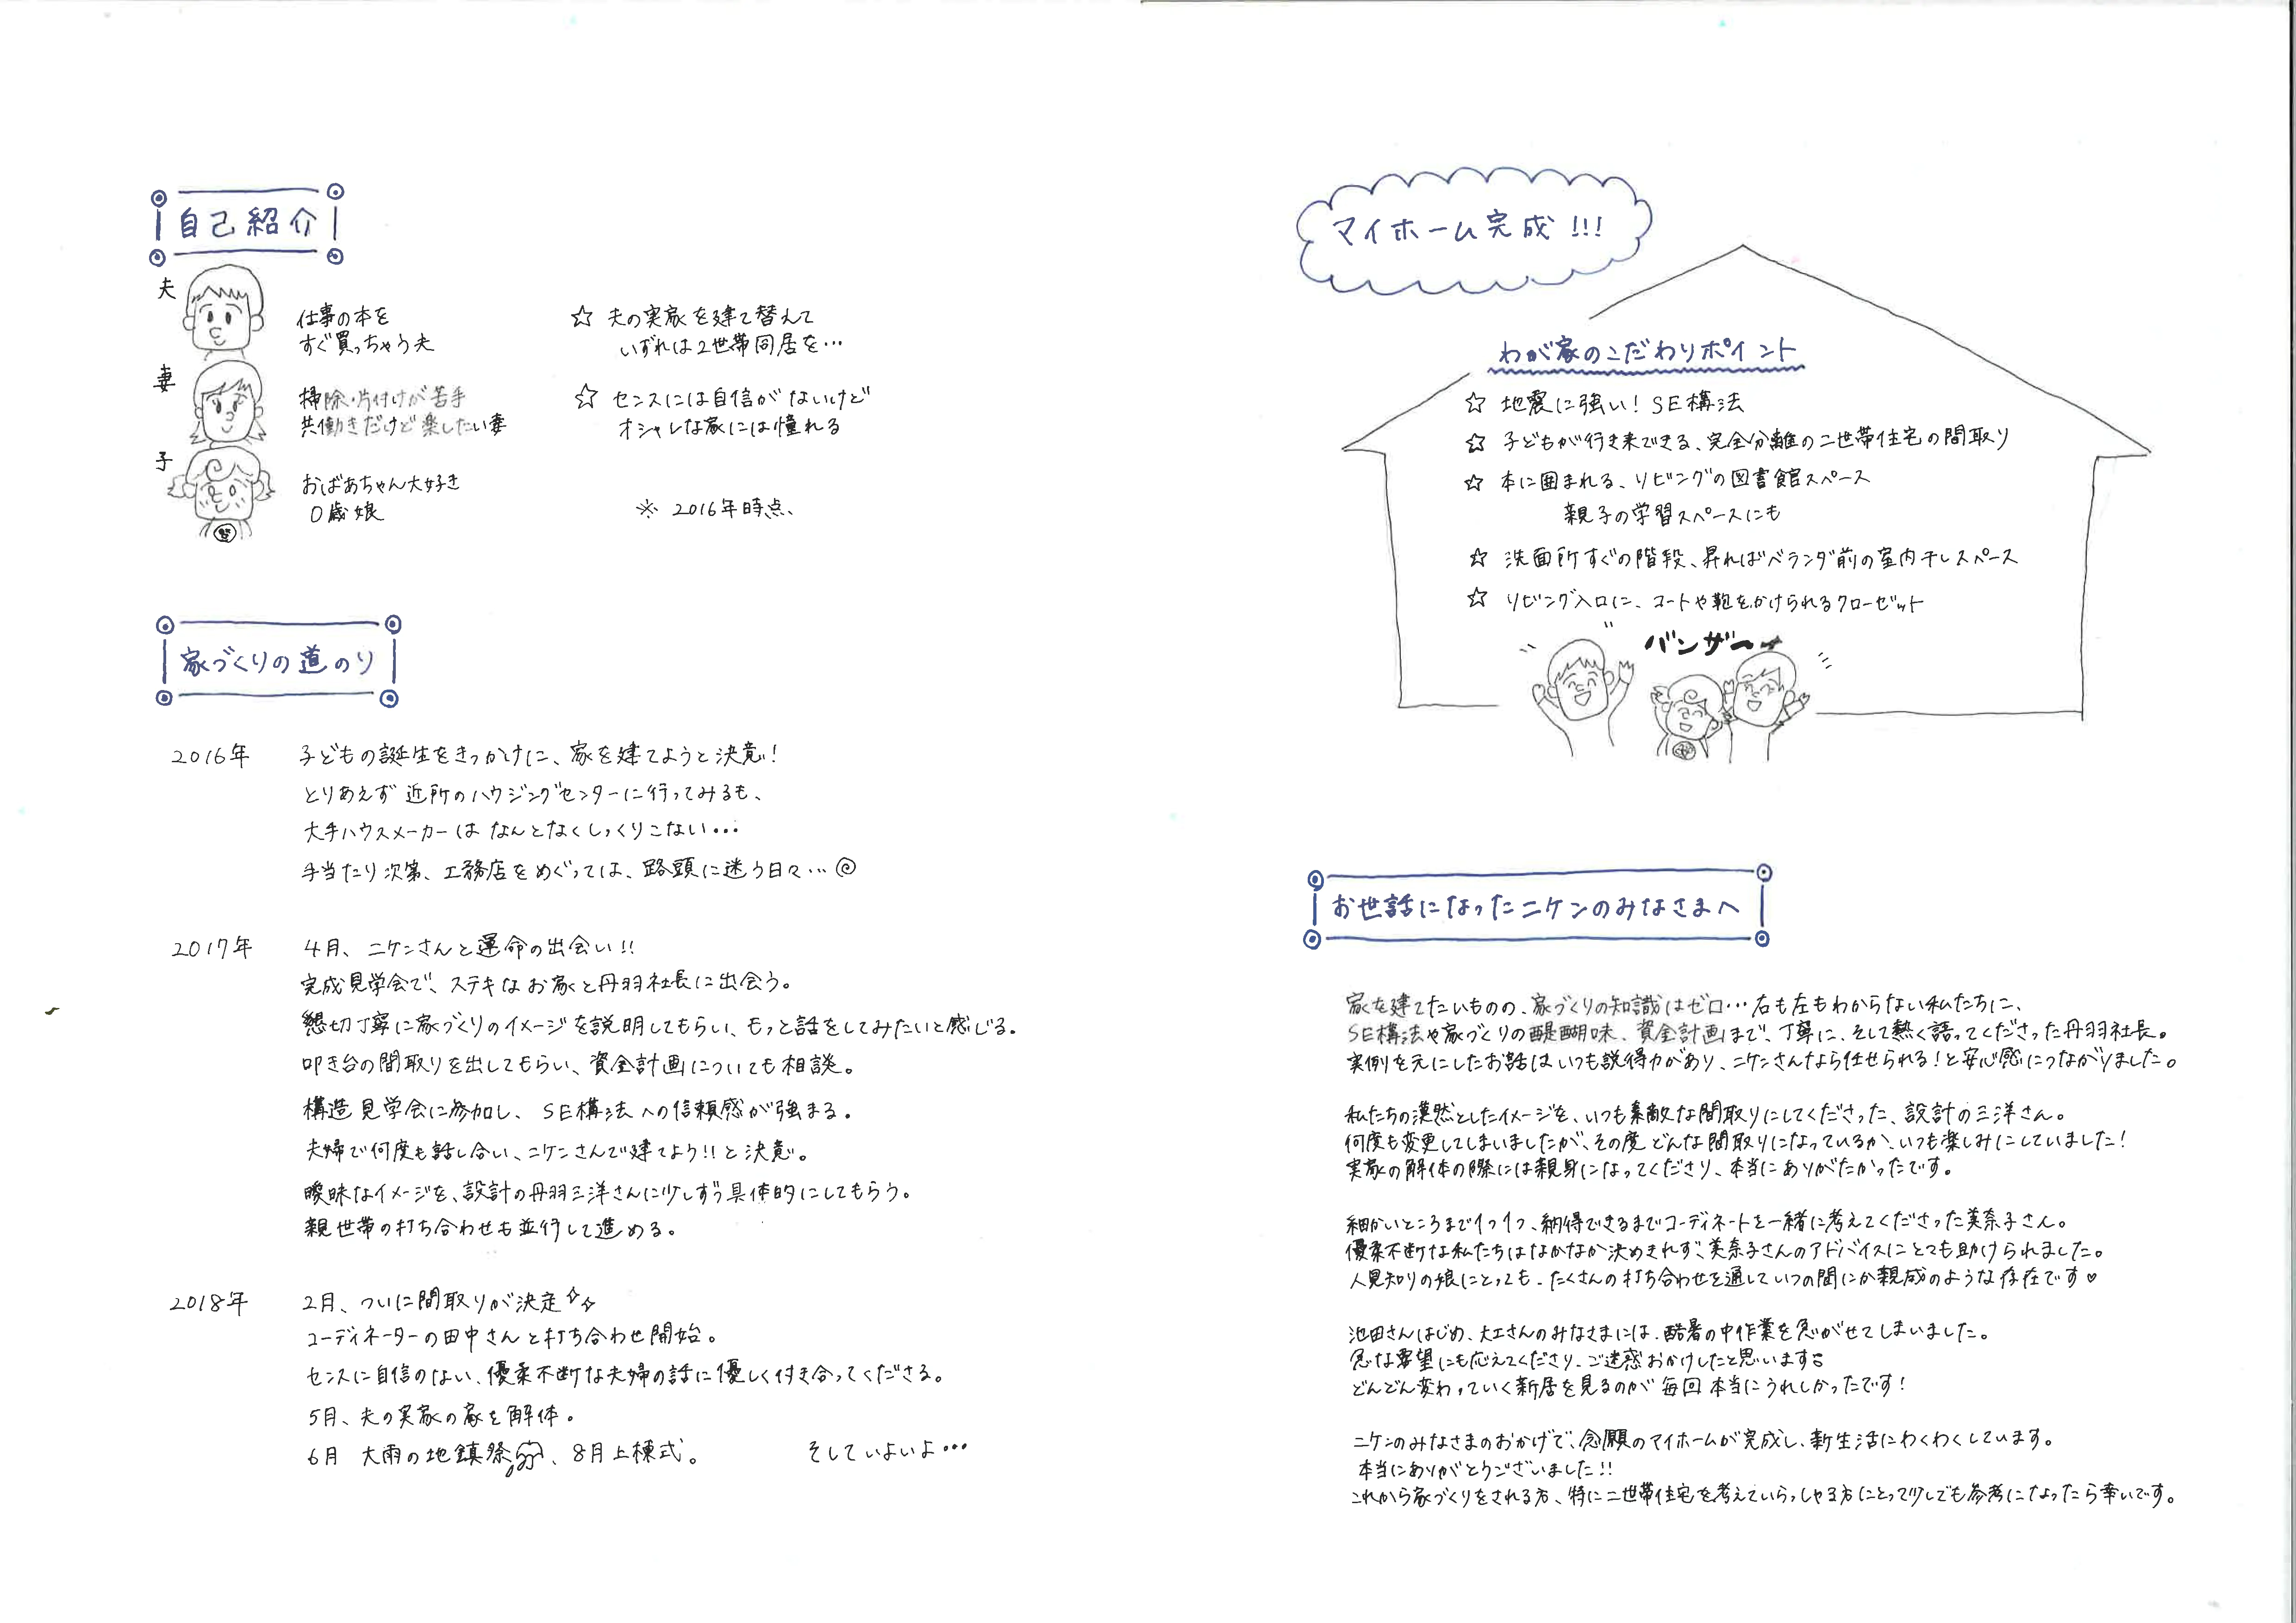 自己紹介
夫
仕事の本を
すぐ買っちゃう夫
妻
掃除・片付けが苦手
共働きだけど楽したい妻
子
おばあちゃん大好き
0歳娘
☆ 夫の実家を建て替えて
いずれは2世帯同居を…
☆ センスには自信がないけど
オシャレな家には憧れる
※ 2016年時点、
家づくりの道のり
2016年 子どもの誕生をきっかけに、家を建てようと決意!
とりあえず近所のハウジングセンターに行ってみるも、
大手ハウスメーカーはなんとなくしっくりこない…
手当たり次第、工務店をめぐっては、路頭に迷う日々…
2017年 4月、ニケンさんと運命の出会い!!
完成見学会で、ステキなお家と丹羽社長に出会う。
懇切丁寧に家づくりのイメージを説明してもらい、もっと話をしてみたいと感じる。
叩き台の間取りを出してもらい、資金計画についても相談。
構造見学会に参加し、SE構法への信頼感が強まる。
夫婦で何度も話し合い、ニケンさんで建てよう!!と決意。
曖昧なイメージを、設計の丹羽三洋さんに少しずつ具体的にしてもらう。
親世帯の打ち合わせも並行して進める。
2018年 2月、ついに間取りが決定
コーディネーターの田中さんと打ち合わせ開始。
センスに自信のない、優柔不断な夫婦の話に優しく付き合ってくださる。
5月、夫の実家の家を解体。
6月 大雨の地鎮祭、8月上棟式。 そしていよいよ…
マイホーム完成!!!
わが家のこだわりポイント
☆ 地震に強い! SE構法
☆ 子どもが行き来できる、完全分離の二世帯住宅の間取り
☆ 本に囲まれる、リビングの図書館スペース
親子の学習スペースにも
☆ 洗面所すぐの階段、昇ればベランダ前の室内干しスペース
☆ リビング入口に、コートや鞄をかけられるクローゼット
バンザーイ
お世話になったニケンのみなさまへ
家を建てたいものの、家づくりの知識はゼロ…右も左もわからない私たちに、
SE構法や家づくりの醍醐味、資金計画まで、丁寧に、そして熱く語ってくださった丹羽社長。
実例を元にしたお話はいつも説得力があり、ニケンさんなら任せられる!と安心感につながりました。
私たちの漠然としたイメージを、いつも素敵な間取りにしてくださった、設計の三洋さん。
何度も変更してしまいましたが、その度どんな間取りになっているか、いつも楽しみにしていました!
実家の解体の際には親身になってくださり、本当にありがたかったです。
細かいところまで1つ1つ、納得できるまでコーディネートを一緒に考えてくださった美奈子さん。
優柔不断な私たちはなかなか決めきれず、美奈子さんのアドバイスにとても助けられました。
人見知りの娘にとっても、たくさんの打ち合わせを通していつの間にか親戚のような存在です♡
池田さんはじめ、大工さんのみなさまには、酷暑の中作業を急がせてしまいました。
急な要望にも応えてくださり、ご迷惑おかけしたと思います
どんどん変わっていく新居を見るのが毎回本当にうれしかったです!
ニケンのみなさまのおかげで、念願のマイホームが完成し、新生活にわくわくしています。
本当にありがとうございました!!
これから家づくりをされる方、特に二世帯住宅を考えていらっしゃる方にとって少しでも参考になったら幸いです。